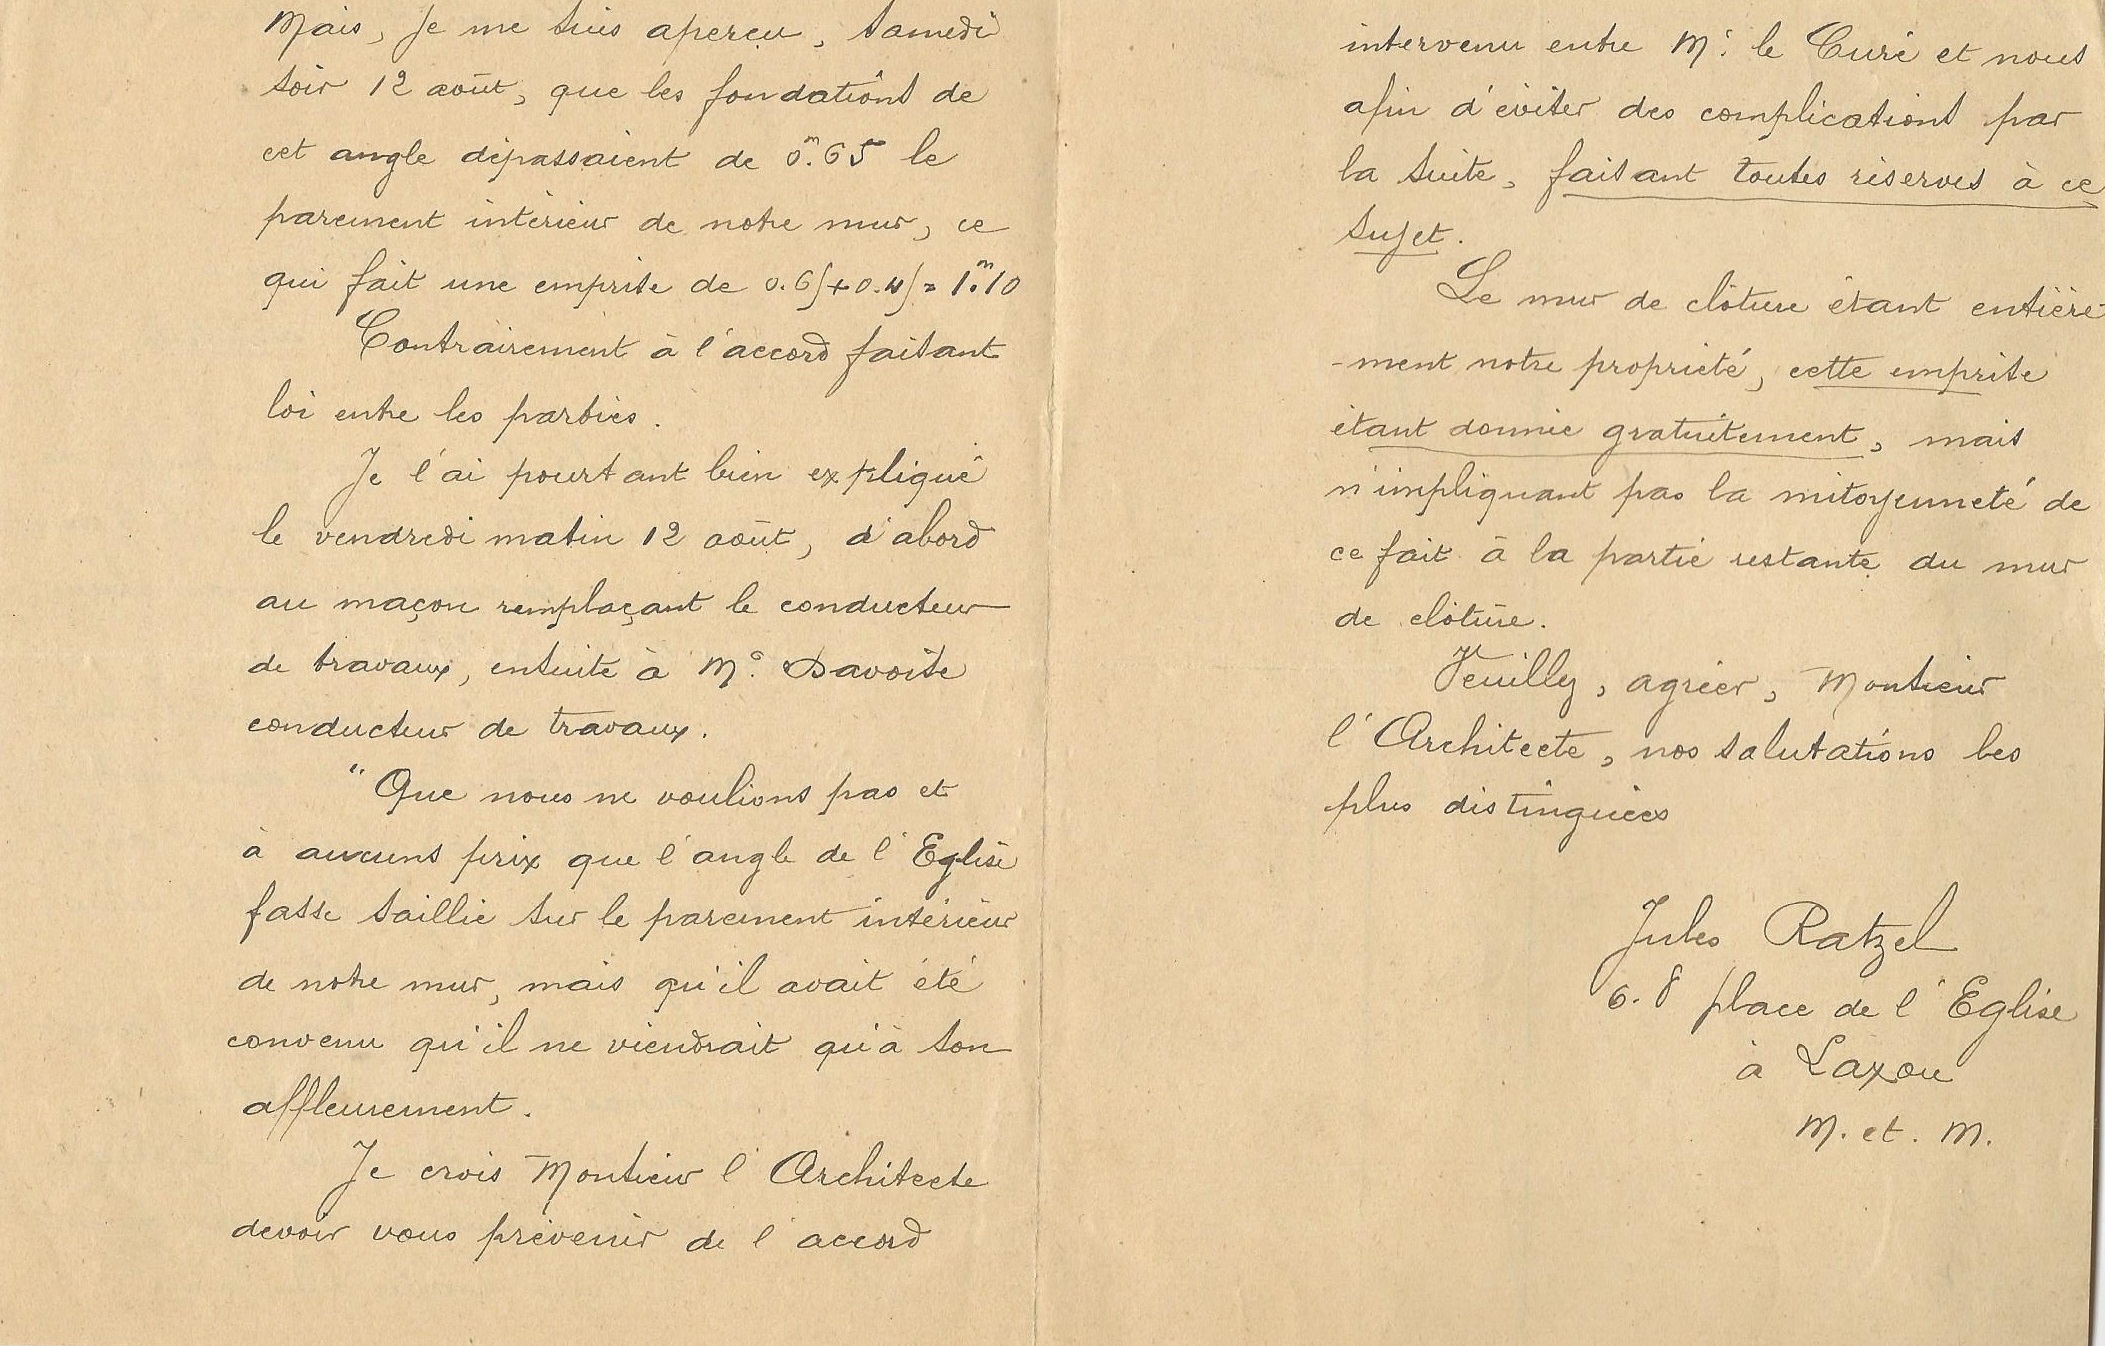 Mais, je me suis aperçu, samedi
soir 12 août, que les fondations de
cet angle dépassaient de 0.m65 le
parement intérieur de notre mur, ce
qui fait une emprise de 0.65+0.45=1.m10
Contrairement à l'accord faisant
loi entre les parties.
Je l'ai pourtant bien expliqué
le vendredi matin 12 août, d'abord
au maçon remplaçant le conducteur
de travaux, ensuite à Mr. Davoise
conducteur de travaux.
"Que nous ne voulions pas et
à aucuns prix que l'angle de l'Eglise
fasse saillie sur le parement intérieur
de notre mur, mais qu'il avait été
convenu qu'il ne viendrait qu'à son
affleurement.
Je crois Monsieur l'Architecte
devoir vous prévenir de l'accord
intervenu entre Mr. le Curé et nous
afin d'éviter des complications par
la suite, faisant toutes réserves à ce
sujet.
Le mur de clôture étant entière-
-ment notre propriété, cette emprise
étant donnée gratuitement, mais
n'impliquant pas la mitoyenneté de
ce fait à la partie restante du mur
de clôture.
Veuilly, agréer, Monsieur
l'Architecte, nos salutations les
plus distinguées
Jules Ratzel
6.8 place de l'Eglise
à Laxou
M. et. M.